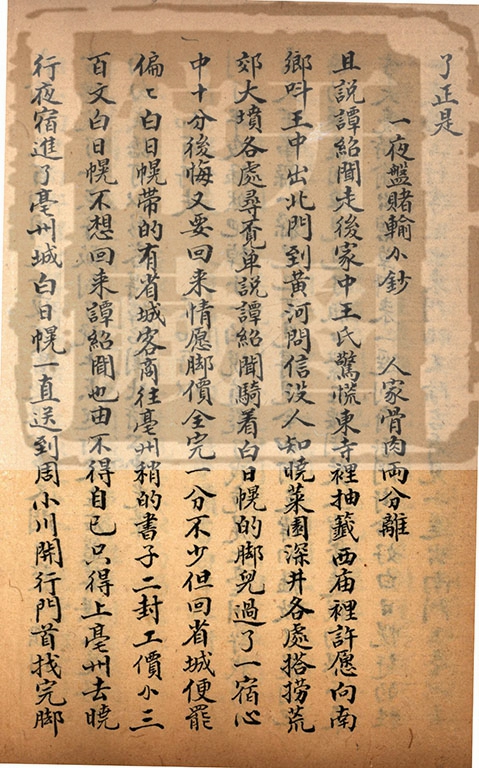 了正是
一夜盤賭輸小鈔　人家骨肉両分離
且説譚紹聞走後家中王氏驚慌東寺裡抽籤西庙裡許愿向南
鄉呌王中出北門到黄河問信没人知曉菜園深井各處搭撈荒
郊大墳各處尋覓単説譚紹聞騎着白日幌的脚兒過了一宿心
中十分後悔又要回来情愿脚價全完一分不少但回省城便罷
偏〻白日幌帶的有省城客商往亳州稍的書子二封工價小三
百文白日幌不想回来譚紹聞也由不得自已只得上亳州去曉
行夜宿進了亳州城白日幌一直送到周小川開行門首找完脚